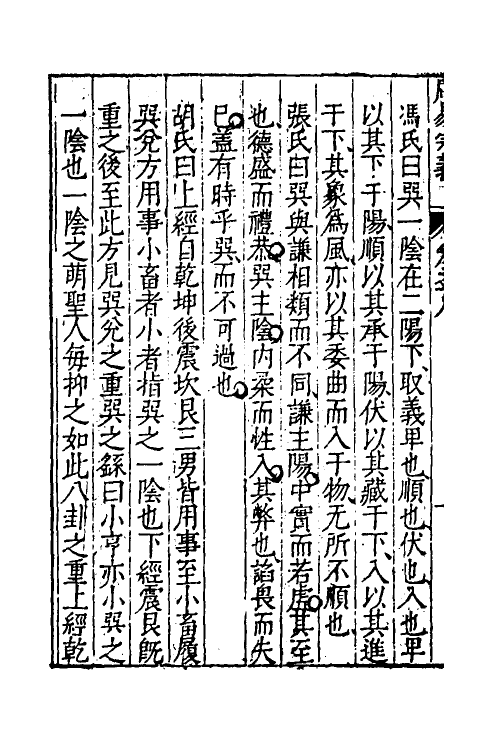 馮氏曰巽一陰在二陽下、取義卑也順也伏也入也卑
以其下于陽、順以其承于陽、伏以其藏于下、入以其進
于下、其象爲風、亦以其委曲而入于物、无所不順也、
張氏曰巽與謙相類而不同、謙主陽、中實而若虛、其至
也、德盛而禮恭、巽主陰、内柔而性入、其弊也、諂畏而失
已、蓋有時乎巽、而不可過也、
胡氏曰上經自乾坤後震坎艮三男皆用事至小畜履
巽兌方用事小畜者小者指巽之一陰也下經震艮既
重之後至此方見巽兌之重巽之繇曰小亨亦小巽之
一陰也一陰之萌聖人每抑之如此八卦之重上經乾